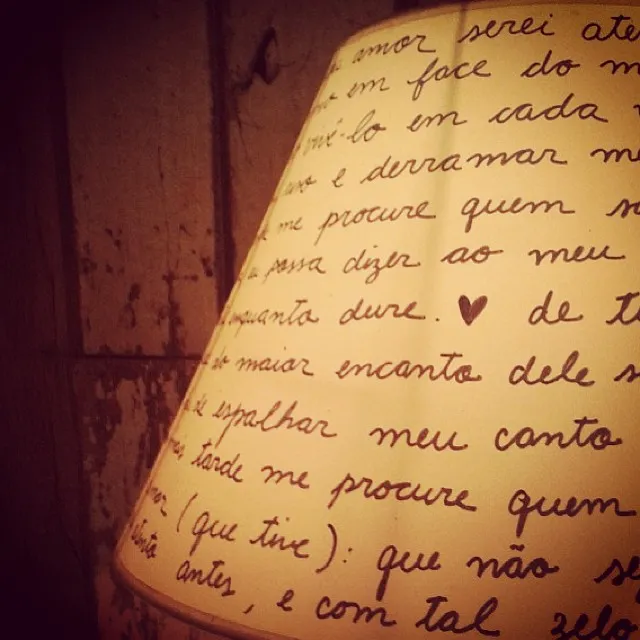 amor serei ate
em face do m
vivê-lo em cada
e derramar me
me procure quem sa
possa dizer ao meu
enquanto dure. ♥ de t
do maior encanto dele s
de espalhar meu canto
tarde me procure quem
(que tive): que não se
antes, e com tal zelo